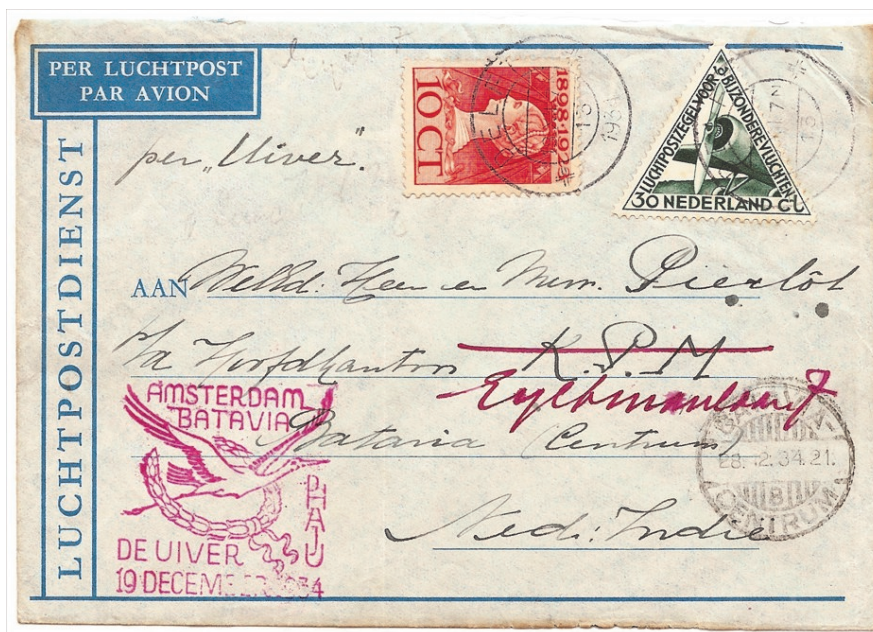 PER LUCHTPOST
PAR AVION
LUCHTPOSTDIENST
per „Uiver".
10 CT
1898·1923
1934
LUCHTPOSTZEGEL VOOR BIJZONDERE VLUCHTEN
30 NEDERLAND CT
AAN Welld: Heer en Mevr. Pierlôt
p/a Hoofdkantoor K.P.M
Batavia Centrum
Ned: Indië
AMSTERDAM
BATAVIA
PHAJU
DE UIVER
19 DECEMBER 1934
BATAVIA
28.12.34.21.
B
CENTRUM